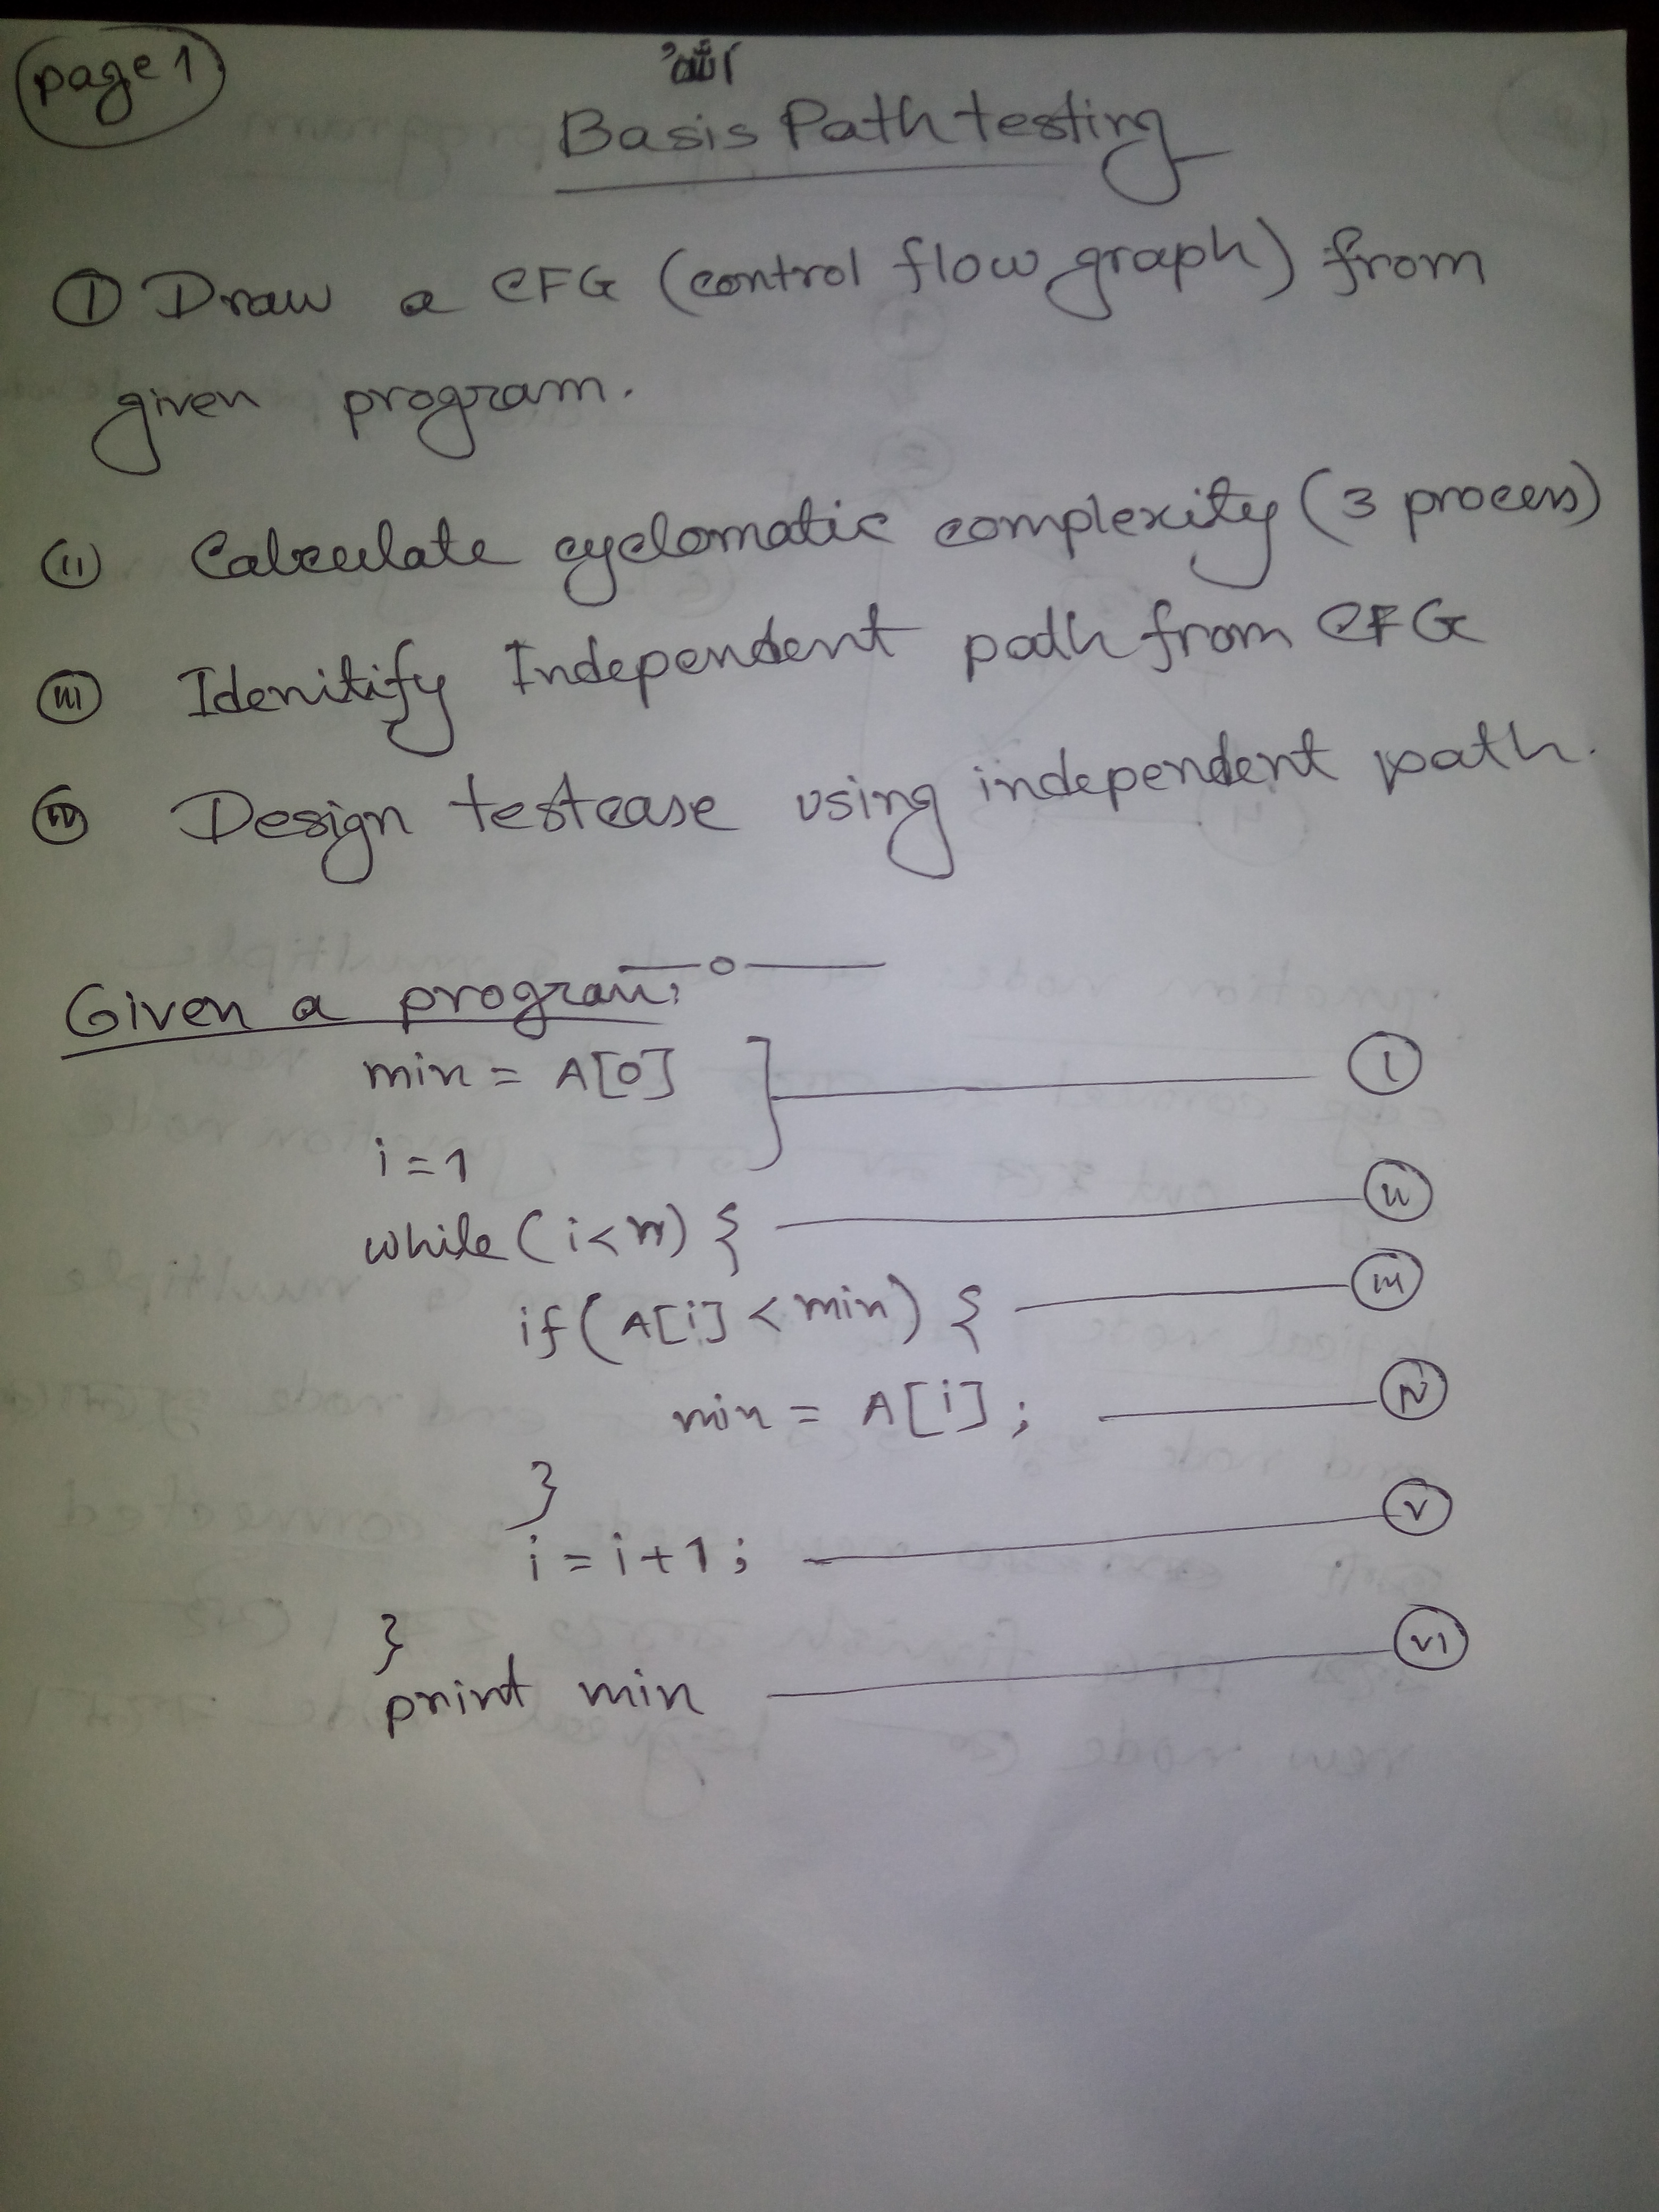 page 1
الله
Basis Path testing
(I) Draw a CFG (control flow graph) from
given program.
(II) Calculate cyclomatic complexity (3 process)
(III) Idenitify Independent path from CFG
(IV) Design testcase using independent path.
Given a program:
min = A[0] (I)
i = 1
while (i<n) { (II)
if (A[i] < min) { (III)
min = A[i]; (IV)
}
i = i+1; (V)
}
print min (VI)